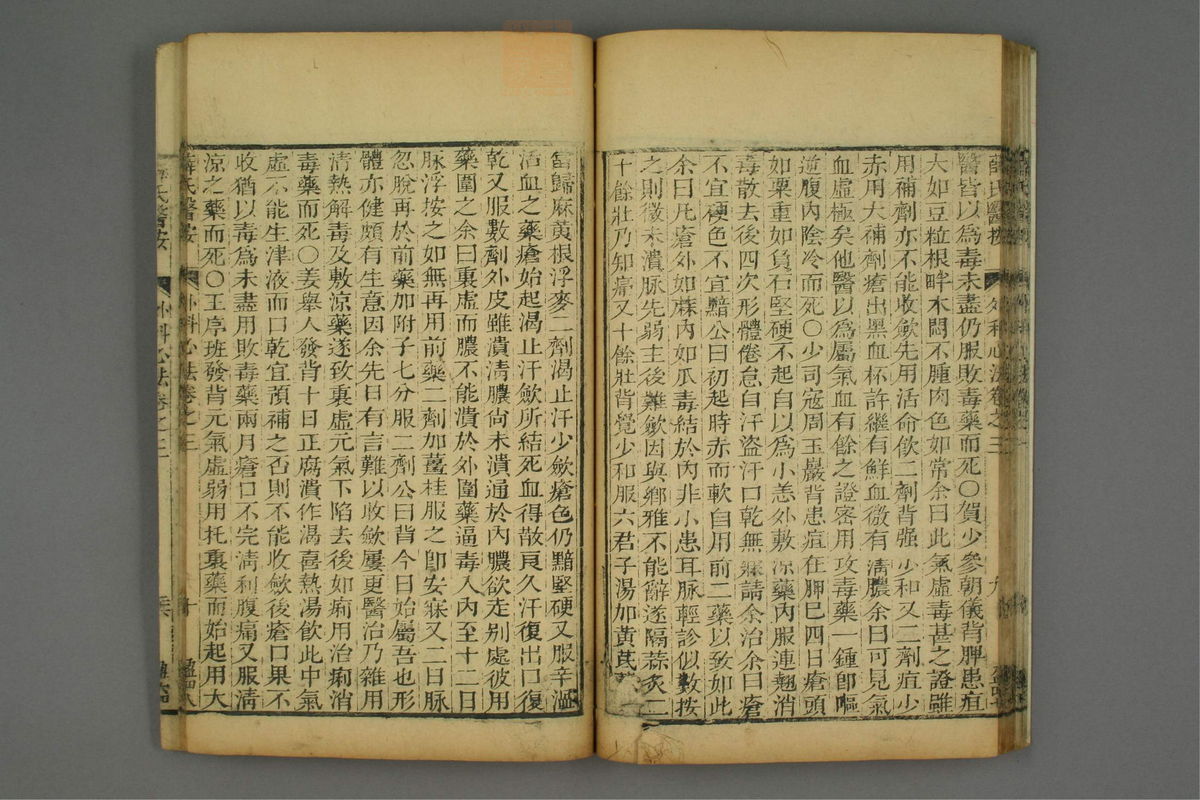 薛氏醫按 外科心法卷之三 九
醫皆以為毒未盡仍服敗毒藥而死○賀少參朝儀背胛患疽
大如豆粒根畔木悶不腫肉色如常余曰此氣虛毒甚之證雖
用補劑亦不能收斂先用活命飲二劑背強少和又二劑疽少
赤用大補劑瘡出黑血杯許繼有鮮血微有清膿余曰可見氣
血虛極矣他醫以為屬氣血有餘之證密用攻毒藥一鍾卽嘔
逆腹內陰冷而死○少司寇周玉巖背患疽在胛巳四日瘡頭
如粟重如負石堅硬不起自以為小恙外敷涼藥內服連翹消
毒散去後四次形體倦怠自汗盜汗口乾無寐請余治余曰瘡
不宜硬色不宜黯公曰初起時赤而軟自用前二藥以致如此
余曰凡瘡外如蔴內如瓜毒結於內非小患耳脉輕診似數按
之則微未潰脉先弱主後難斂因與鄉雅不能辭遂隔蒜炙二
十餘壯乃知痛又十餘壯背覺少和服六君子湯加黃芪
當歸麻黃根浮麥二劑渴止汗少斂瘡色仍黯堅硬又服辛溫
活血之藥瘡始起渴止汗斂所結死血得散良久汗復出口復
乾又服數劑外皮雖潰清膿尙未潰通於內膿欲走別處彼用
藥圍之余曰裏虛而膿不能潰於外圍藥逼毒入內至十二日
脉浮按之如無再用前藥二劑加薑桂服之卽安寐又二日脉
忽脫再於前藥加附子七分服二劑公曰背今日始屬吾也形
體亦健頗有生意因余先日有言難以收斂屢更醫治乃雜用
清熱解毒及敷涼藥遂致裏虛元氣下陷去後如痢用治痢消
毒藥而死○姜舉人發背十日正腐潰作渴喜熱湯飲此中氣
虛不能生津液而口乾宜預補之否則不能收斂後瘡口果不
收猶以毒為未盡用敗毒藥兩月瘡口不完淸利腹痛又服淸
涼之藥而死○王序班發背元氣虛弱用托裏藥而始起用大
薛氏醫按 外科心法卷之三 十